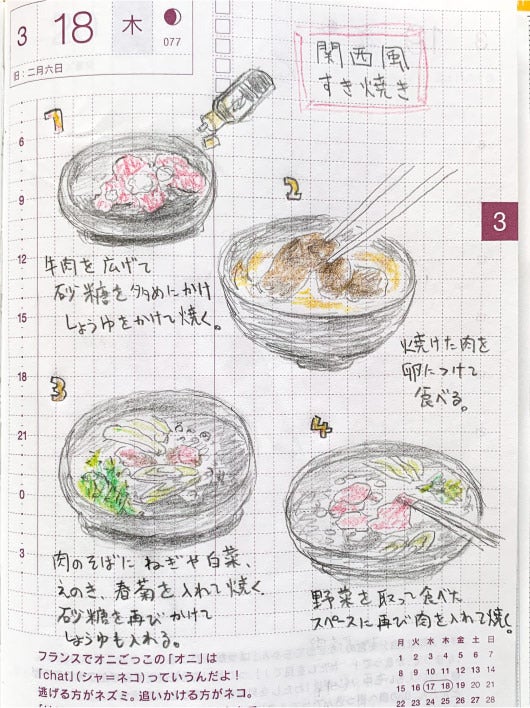 3 18 木
077
日：二月六日
関西風
すき焼き
1
6
9
12
15
18
21
0
3
3
牛肉を広げて
砂糖を多めにかけ
しょうゆをかけて焼く。
2
焼けた肉を
卵につけて
食べる。
3
肉のそばに ねぎや白菜、
えのき、春菊を入れて焼く
砂糖を再びかけて
しょうゆも入れる。
4
野菜を取って食べた
スペースに再び肉を入れて焼く。
フランスでオニごっこの「オニ」は
「chat」（シャ＝ネコ）っていうんだよ！
逃げる方がネズミ。追いかける方がネコ。
月 火 水 木 金 土 日
1 2 3 4 5 6 7
8 9 10 11 12 13 14
15 16 17 18 19 20 21
22 23 24 25 26 27 28